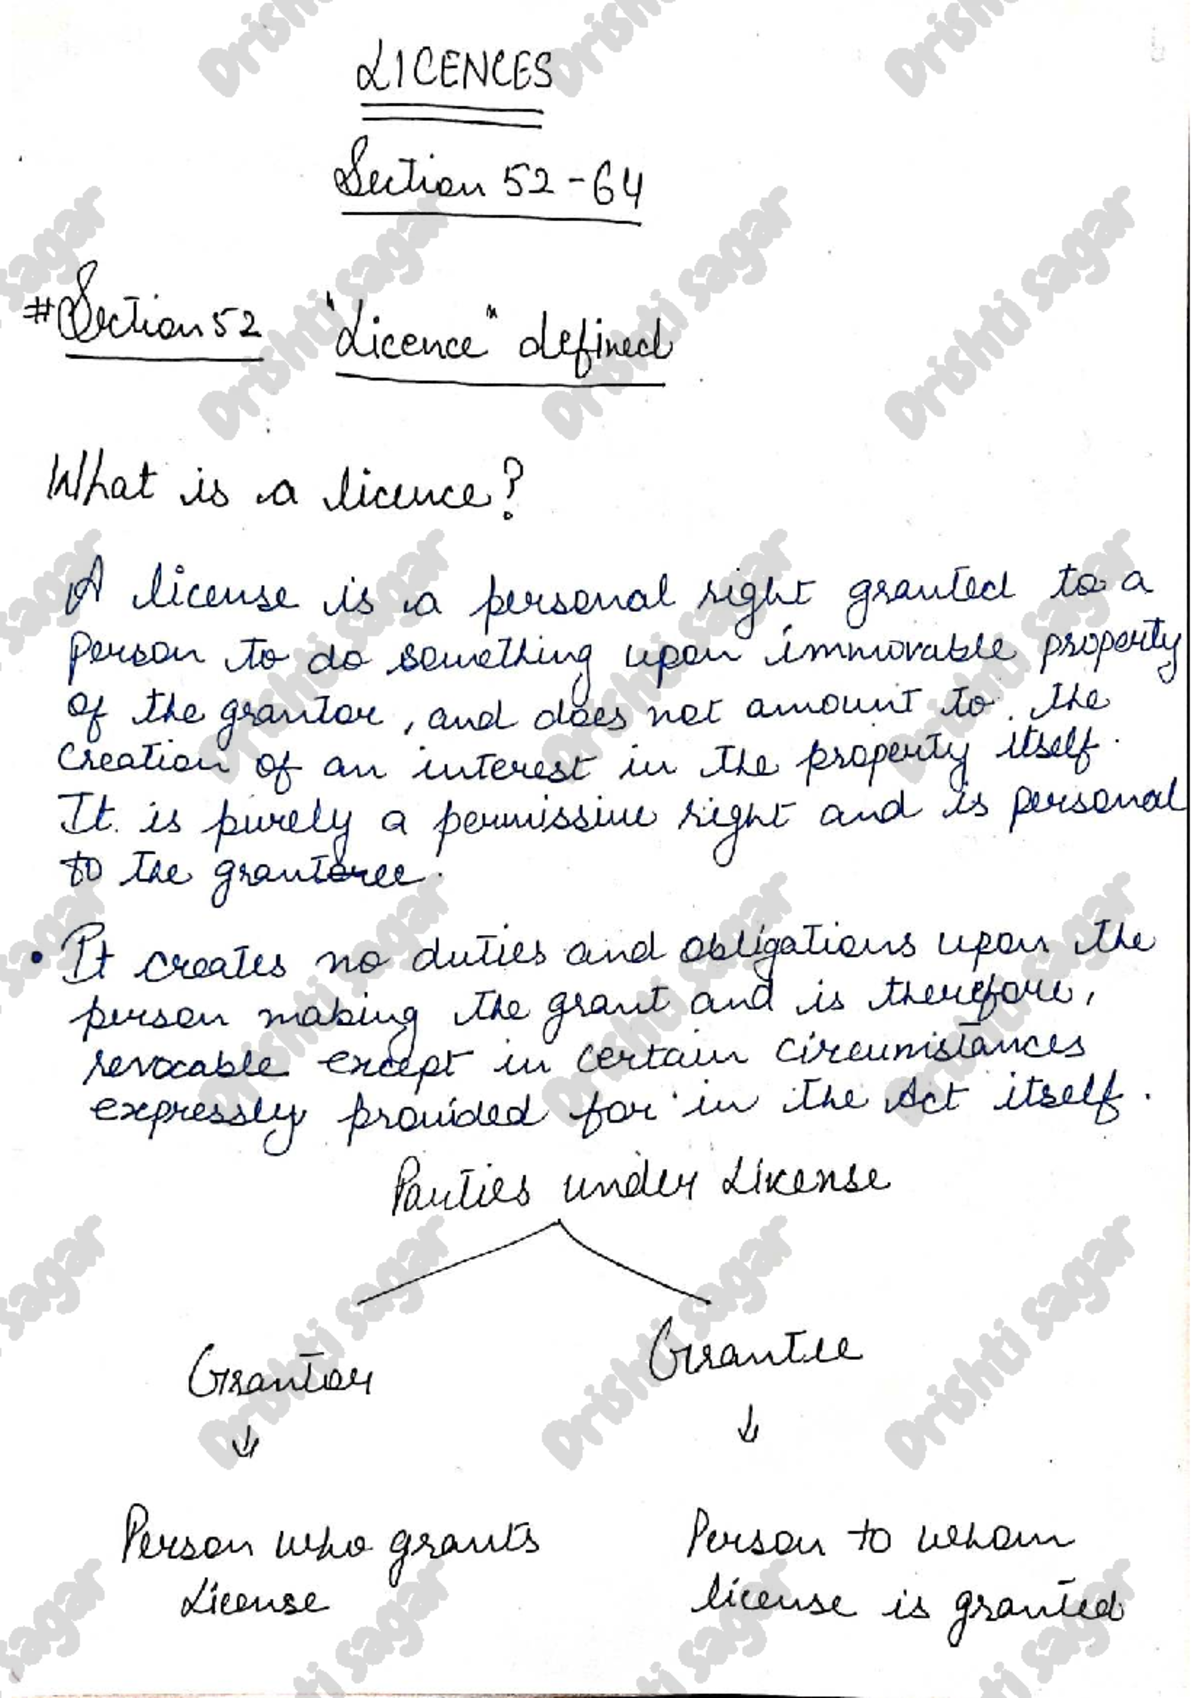 LICENCES
Section 52-64
#Section 52 "Licence" defined
What is a licence?
A license is a personal right granted to a
person to do something upon immovable property
of the grantor, and does not amount to the
creation of an interest in the property itself.
It is purely a permissive right and is personal
to the grantee.
• It creates no duties and obligations upon the
person making the grant and is therefore,
revocable except in certain circumstances
expressly provided for in the Act itself.
Parties under License
Grantor Grantee
↓ ↓
Person who grants Person to whom
License license is granted
Drishti sagar